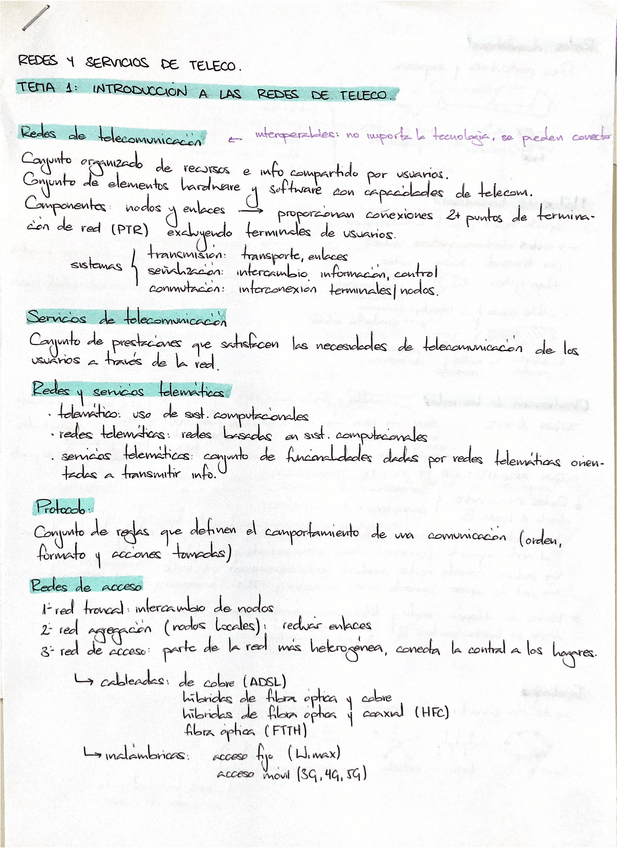 REDES Y SERVICIOS DE TELECO.
TEMA 1: INTRODUCCIÓN A LAS REDES DE TELECO.
Redes de telecomunicación ← interoperables: no importa la tecnología, se pueden conectar
Conjunto organizado de recursos e info compartido por usuarios.
Conjunto de elementos hardware y software con capacidades de telecom.
Componentes: nodos y enlaces → proporcionan conexiones 2+ puntos de termina-
ción de red (PTR) excluyendo terminales de usuarios.
sistemas { transmisión: transporte, enlaces
señalización: intercambio, información, control
conmutación: interconexión terminales/nodos.
Servicios de telecomunicación
Conjunto de prestaciones que satisfacen las necesidades de telecomunicación de los
usuarios a través de la red.
Redes y servicios telemáticos
· telemático: uso de sist. computacionales
· redes telemáticas: redes basadas en sist. computacionales
· servicios telemáticos: conjunto de funcionalidades dadas por redes telemáticas orien-
tadas a transmitir info.
Protocolo:
Conjunto de reglas que definen el comportamiento de una comunicación (orden,
formato y acciones tomadas)
Redes de acceso
1- red troncal: intercambio de nodos
2- red agregación (nodos locales): reducir enlaces
3- red de acceso: parte de la red más heterogénea, conecta la central a los hogares.
↳ cableadas: de cobre (ADSL)
híbridas de fibra óptica y cobre
híbridas de fibra óptica y coaxial (HFC)
fibra óptica (FTTH)
↳ inalámbricas: acceso fijo (Wimax)
acceso móvil (3G, 4G, 5G)